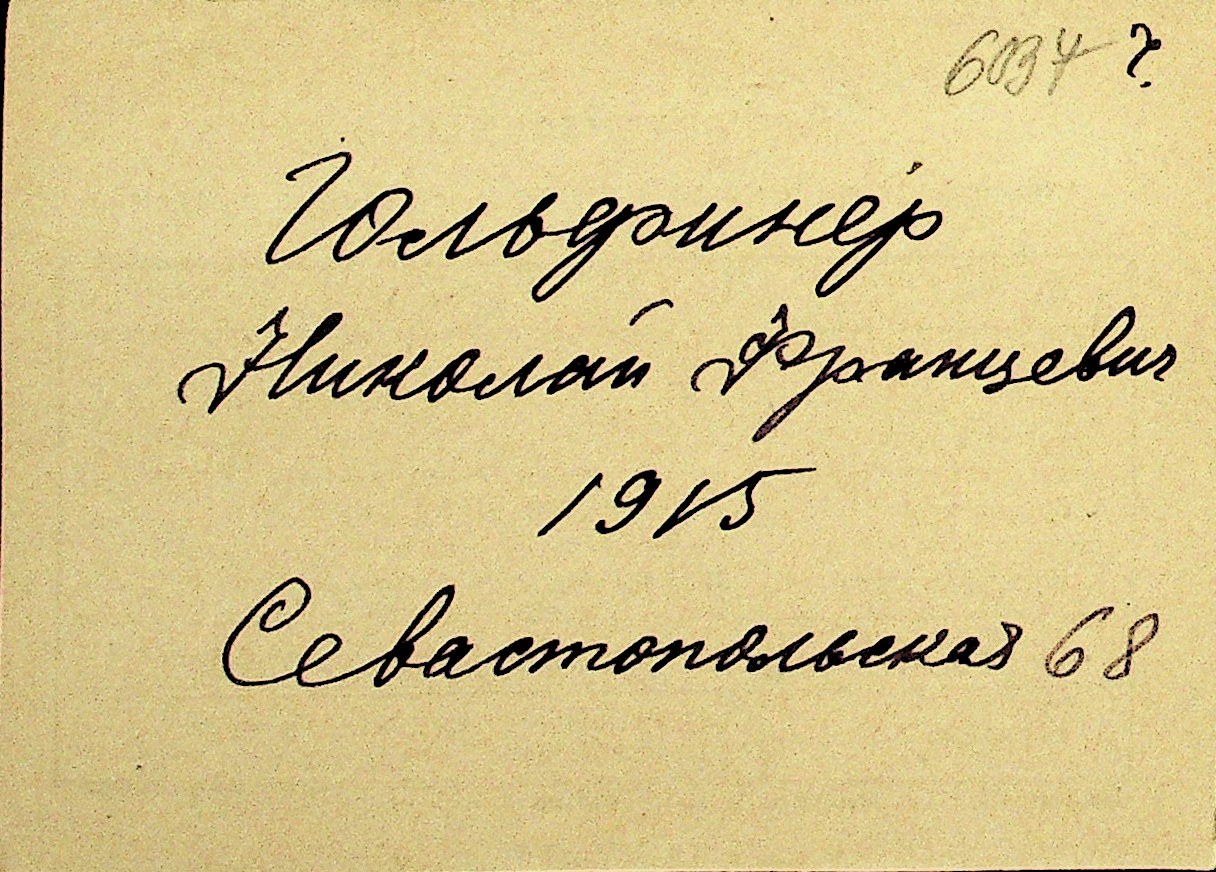 6034 ?
Гольфинер
Николай Францевич
1915
Севастопольская 68